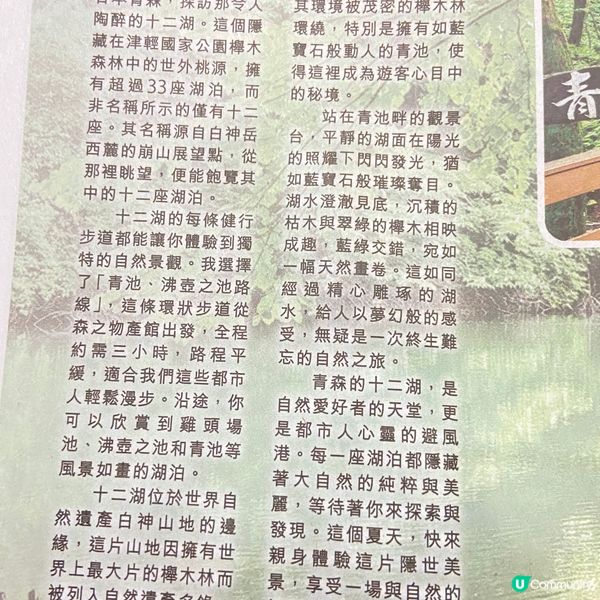 日本青森，探訪那令人
陶醉的十二湖。這個隱
藏在津輕國家公園櫸木
森林中的世外桃源，擁
有超過33座湖泊，而
非名稱所示的僅有十二
座。其名稱源自白神岳
西麓的崩山展望點，從
那裡眺望，便能飽覽其
中的十二座湖泊。
十二湖的每條健行
步道都能讓你體驗到獨
特的自然景觀。我選擇
了「青池、沸壺之池路
線」，這條環狀步道從
森之物產館出發，全程
約需三小時，路程平
緩，適合我們這些都市
人輕鬆漫步。沿途，你
可以欣賞到雞頭場
池、沸壺之池和青池等
風景如畫的湖泊。
十二湖位於世界自
然遺產白神山地的邊
緣，這片山地因擁有世
界上最大片的櫸木林而
被列入自然遺產名錄
其環境被茂密的櫸木林
環繞，特別是擁有如藍
寶石般動人的青池，使
得這裡成為遊客心目中
的秘境。
站在青池畔的觀景
台，平靜的湖面在陽光
的照耀下閃閃發光，猶
如藍寶石般璀璨奪目。
湖水澄澈見底，沉積的
枯木與翠綠的櫸木相映
成趣，藍綠交錯，宛如
一幅天然畫卷。這如同
經過精心雕琢的湖
水，給人以夢幻般的感
受，無疑是一次終生難
忘的自然之旅。
青森的十二湖，是
自然愛好者的天堂，更
是都市人心靈的避風
港。每一座湖泊都隱藏
著大自然的純粹與美
麗，等待著你來探索與
發現。這個夏天，快來
親身體驗這片隱世美
景，享受一場與自然的
青
U Community